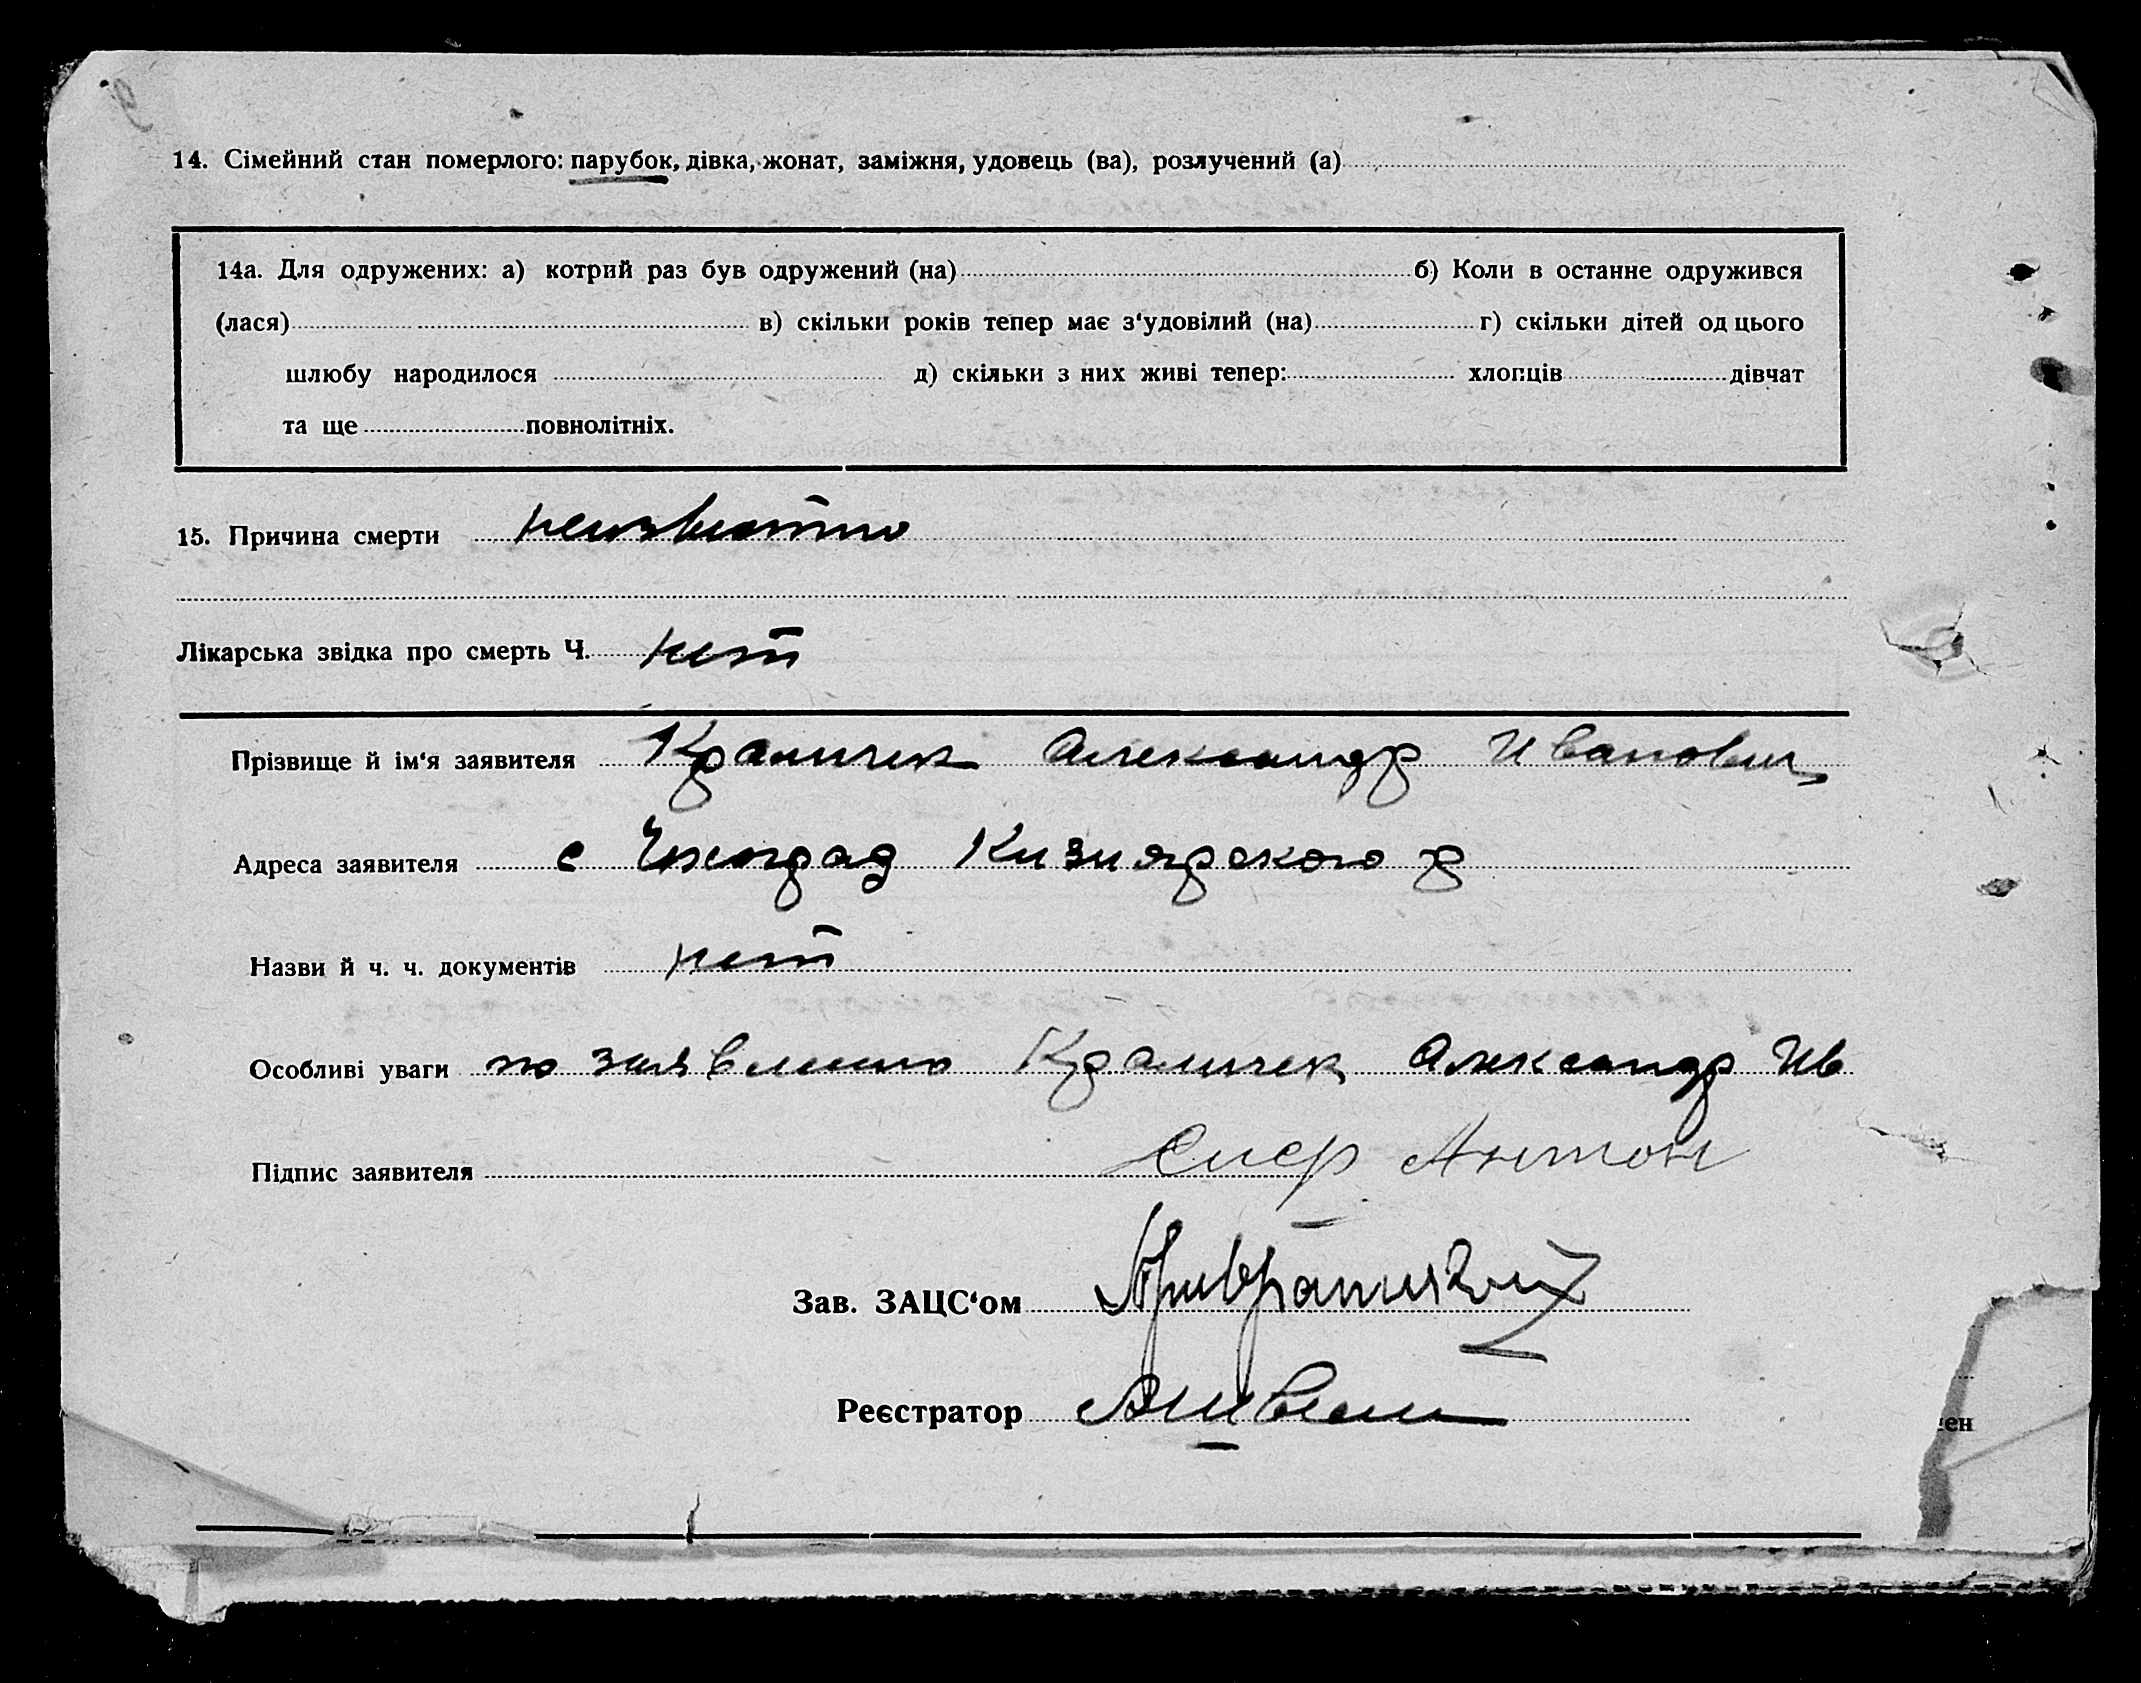 14. Сімейний стан померлого: парубок, дівка, жонат, заміжня, удовець (ва), розлучений (а)
14а. Для одружених: а) котрий раз був одружений (на) б) Коли в останне одружився
(лася) в) скільки років тепер має з‘удовілий (на) г) скільки дітей од цього
шлюбу народилося д) скільки з них живі тепер: хлопців дівчат
та ще повнолітніх.
15. Причина смерти неизвестно
Лікарська звідка про смерть Ч. нет
Прізвище й ім‘я заявителя Краличек Александр Иванович
Адреса заявителя с Чехоград Кизиярского р
Назви й ч. ч. документів нет
Особливі уваги по заявлению Краличек Александр Ив
Підпис заявителя Антон
Зав. ЗАЦС‘ом
Реєстратор